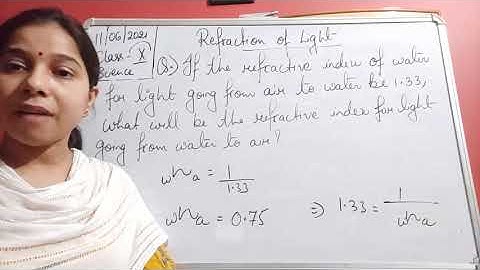 11/06/2021
Class - X
Science
Refraction of Light
(Q:) If the refractive index of water
for light going from air to water be 1.33,
what will be the refractive index for light
going from water to air?
wna = 1/1.33
wna = 0.75
⇒ 1.33 = 1/wna